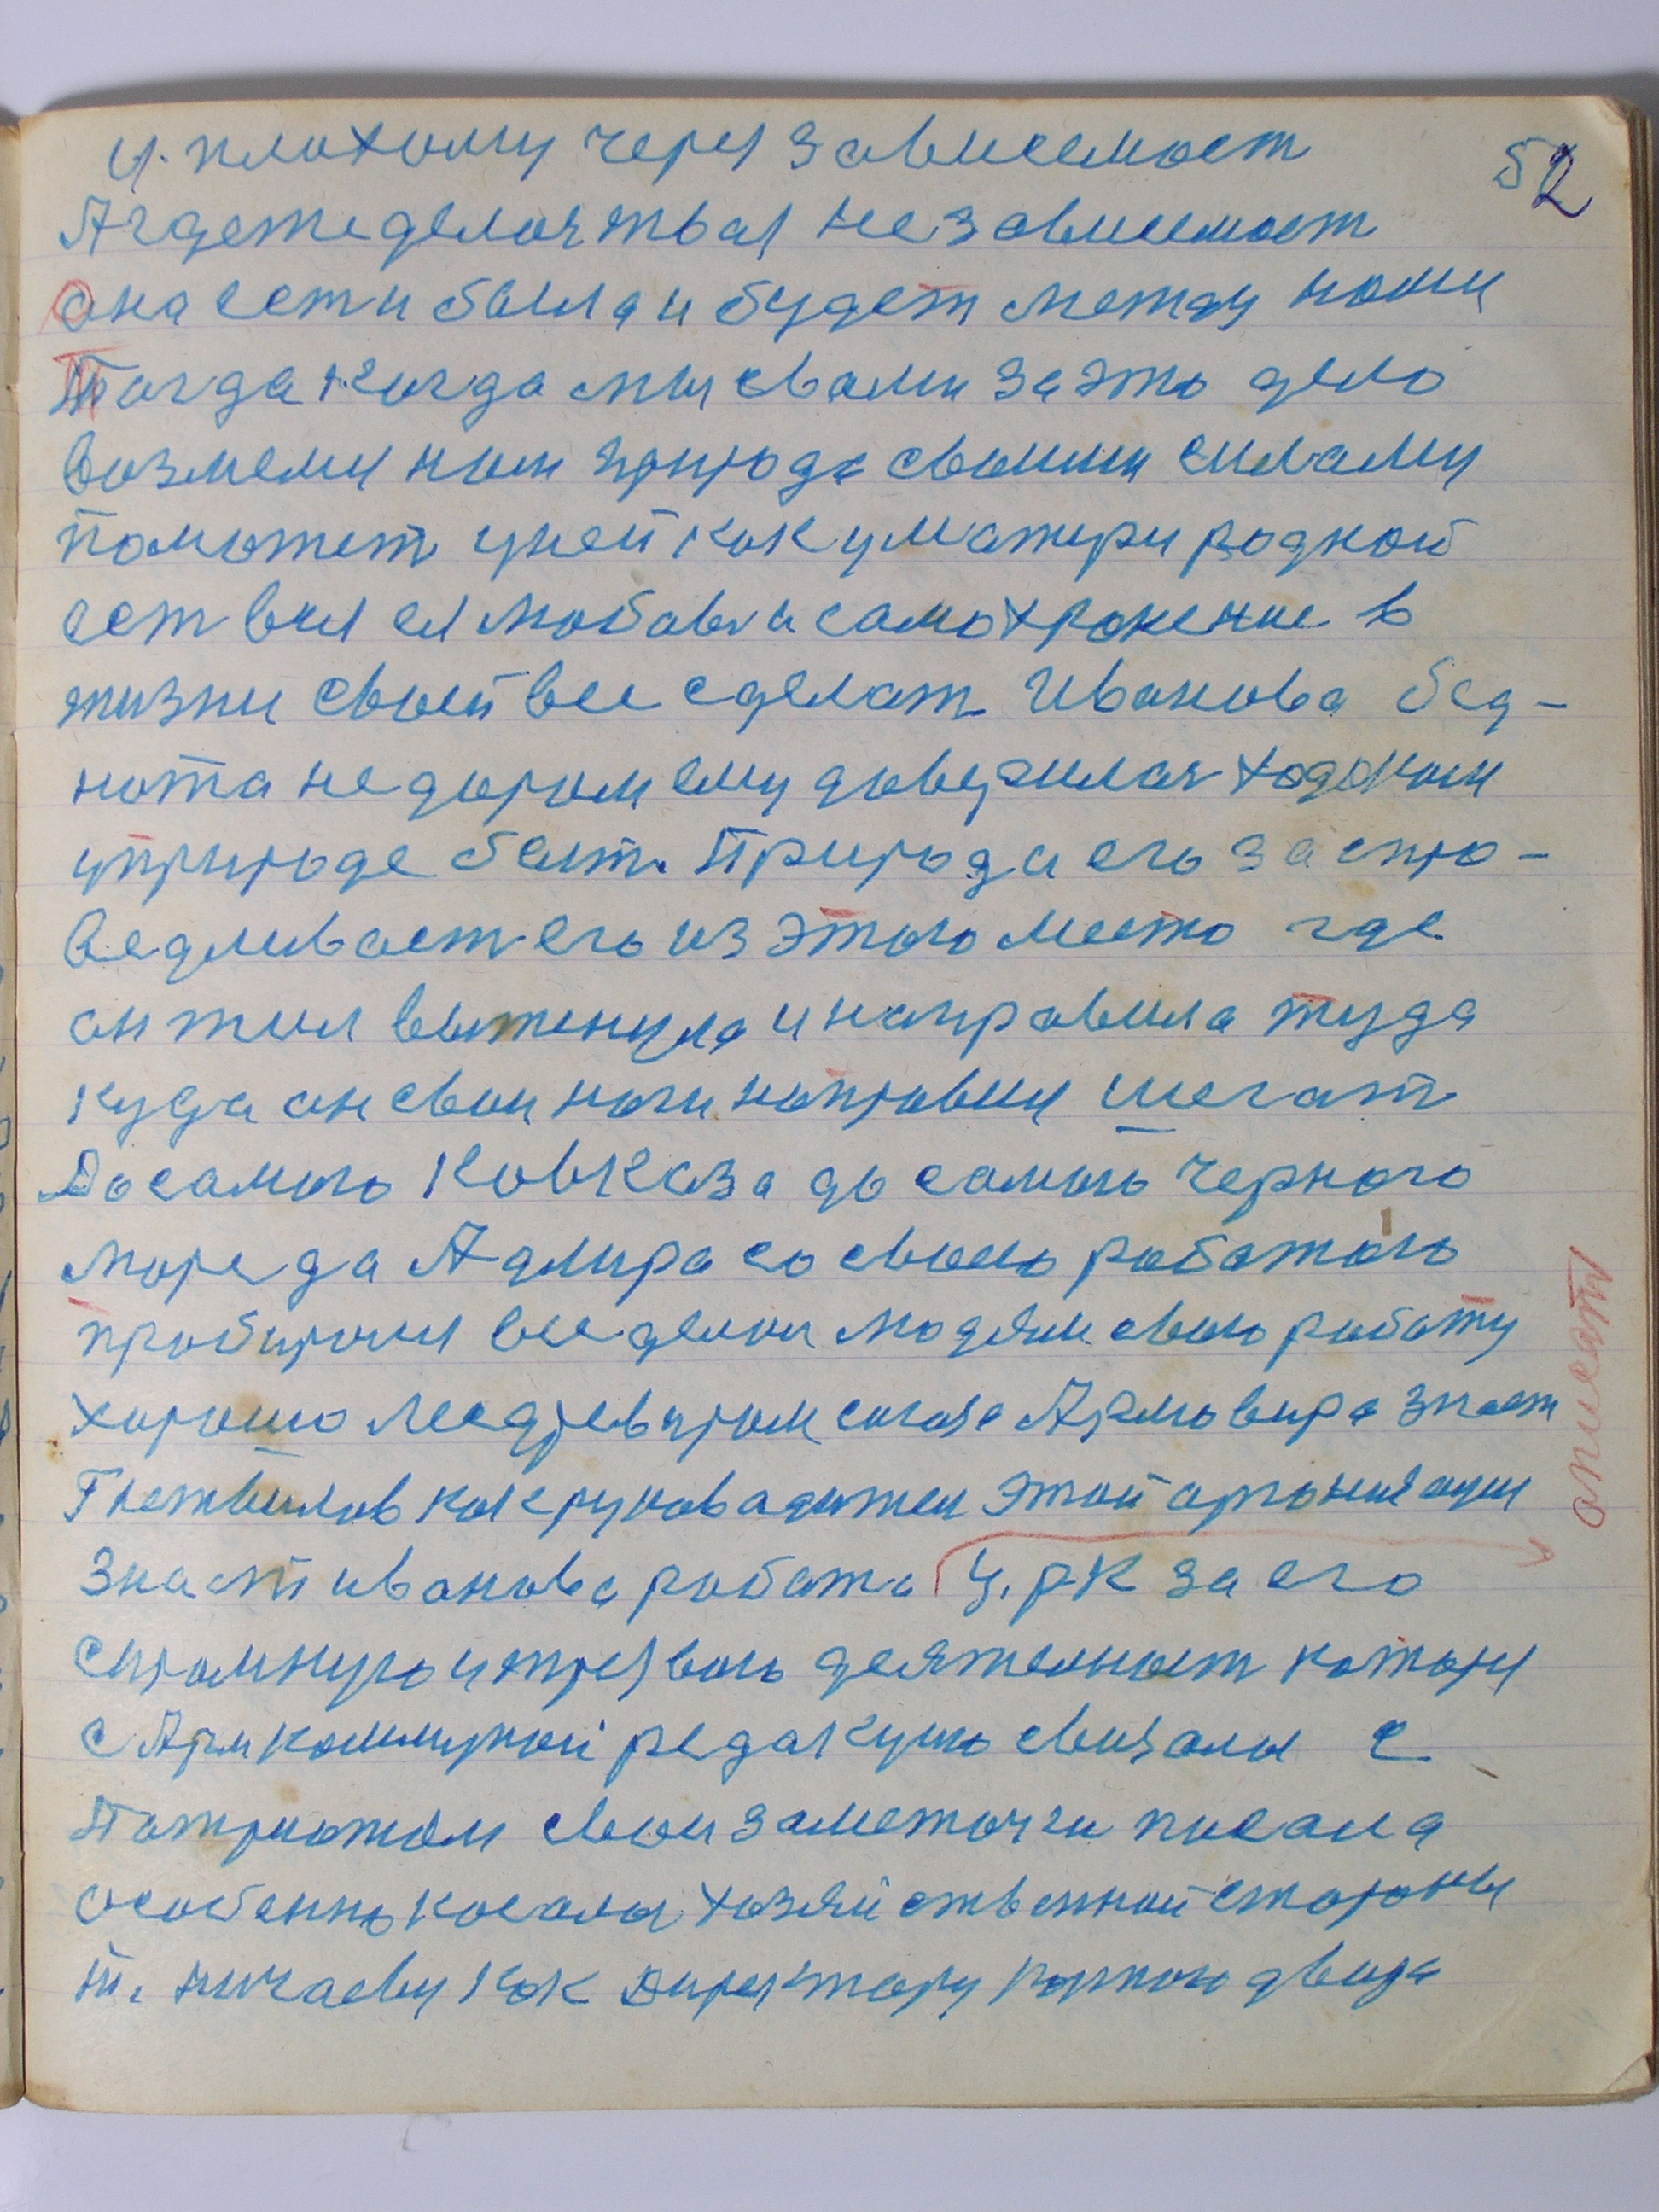 и. плохому через зависемост
52
А гдетеделоя твая незовисемост
она есть и была и будет между нами
Тогда когда мы свами за это дело
возмемы ном природа своими силами
поможет у ней как уматери родной
ест вся ея любовь и самохронение в
жизни своей все сделат Иванова бед-
нота не даром ему доверилас ходоком
уприроде быт. Природа его заспро-
ведливаст его из этого место где
он жил вытенула и направила туда
куда он свои ноги направил шегат
До самого Ковказа до самого Черного
море да Адлира со своею работою
пробирался вседелои людям свою работу
хорошо Леедревпром союза Армовира знает
Гнетвилов как руковадитель этой органия ации
знает иванова работа Ц.Р.К за его
скромную и трезвою деятелност которы
с Армкоммуной редакцию свизалы с
Патриотом свои заметочки писала
особенно косалы хозяйственной стороны
т. ничаеву как директору конного двора
опиеат